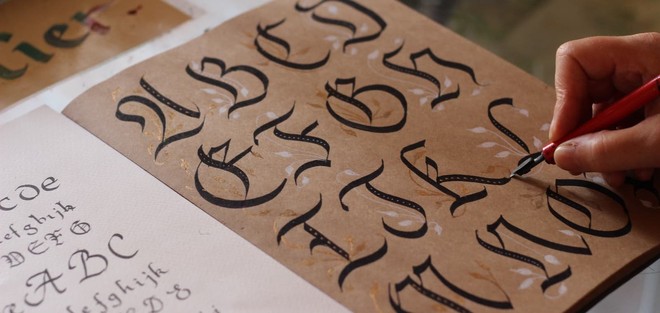 lier
A B C D
E F G H
I J K L
M N O
cde
efghijk
DEFG
ABC
defghijk